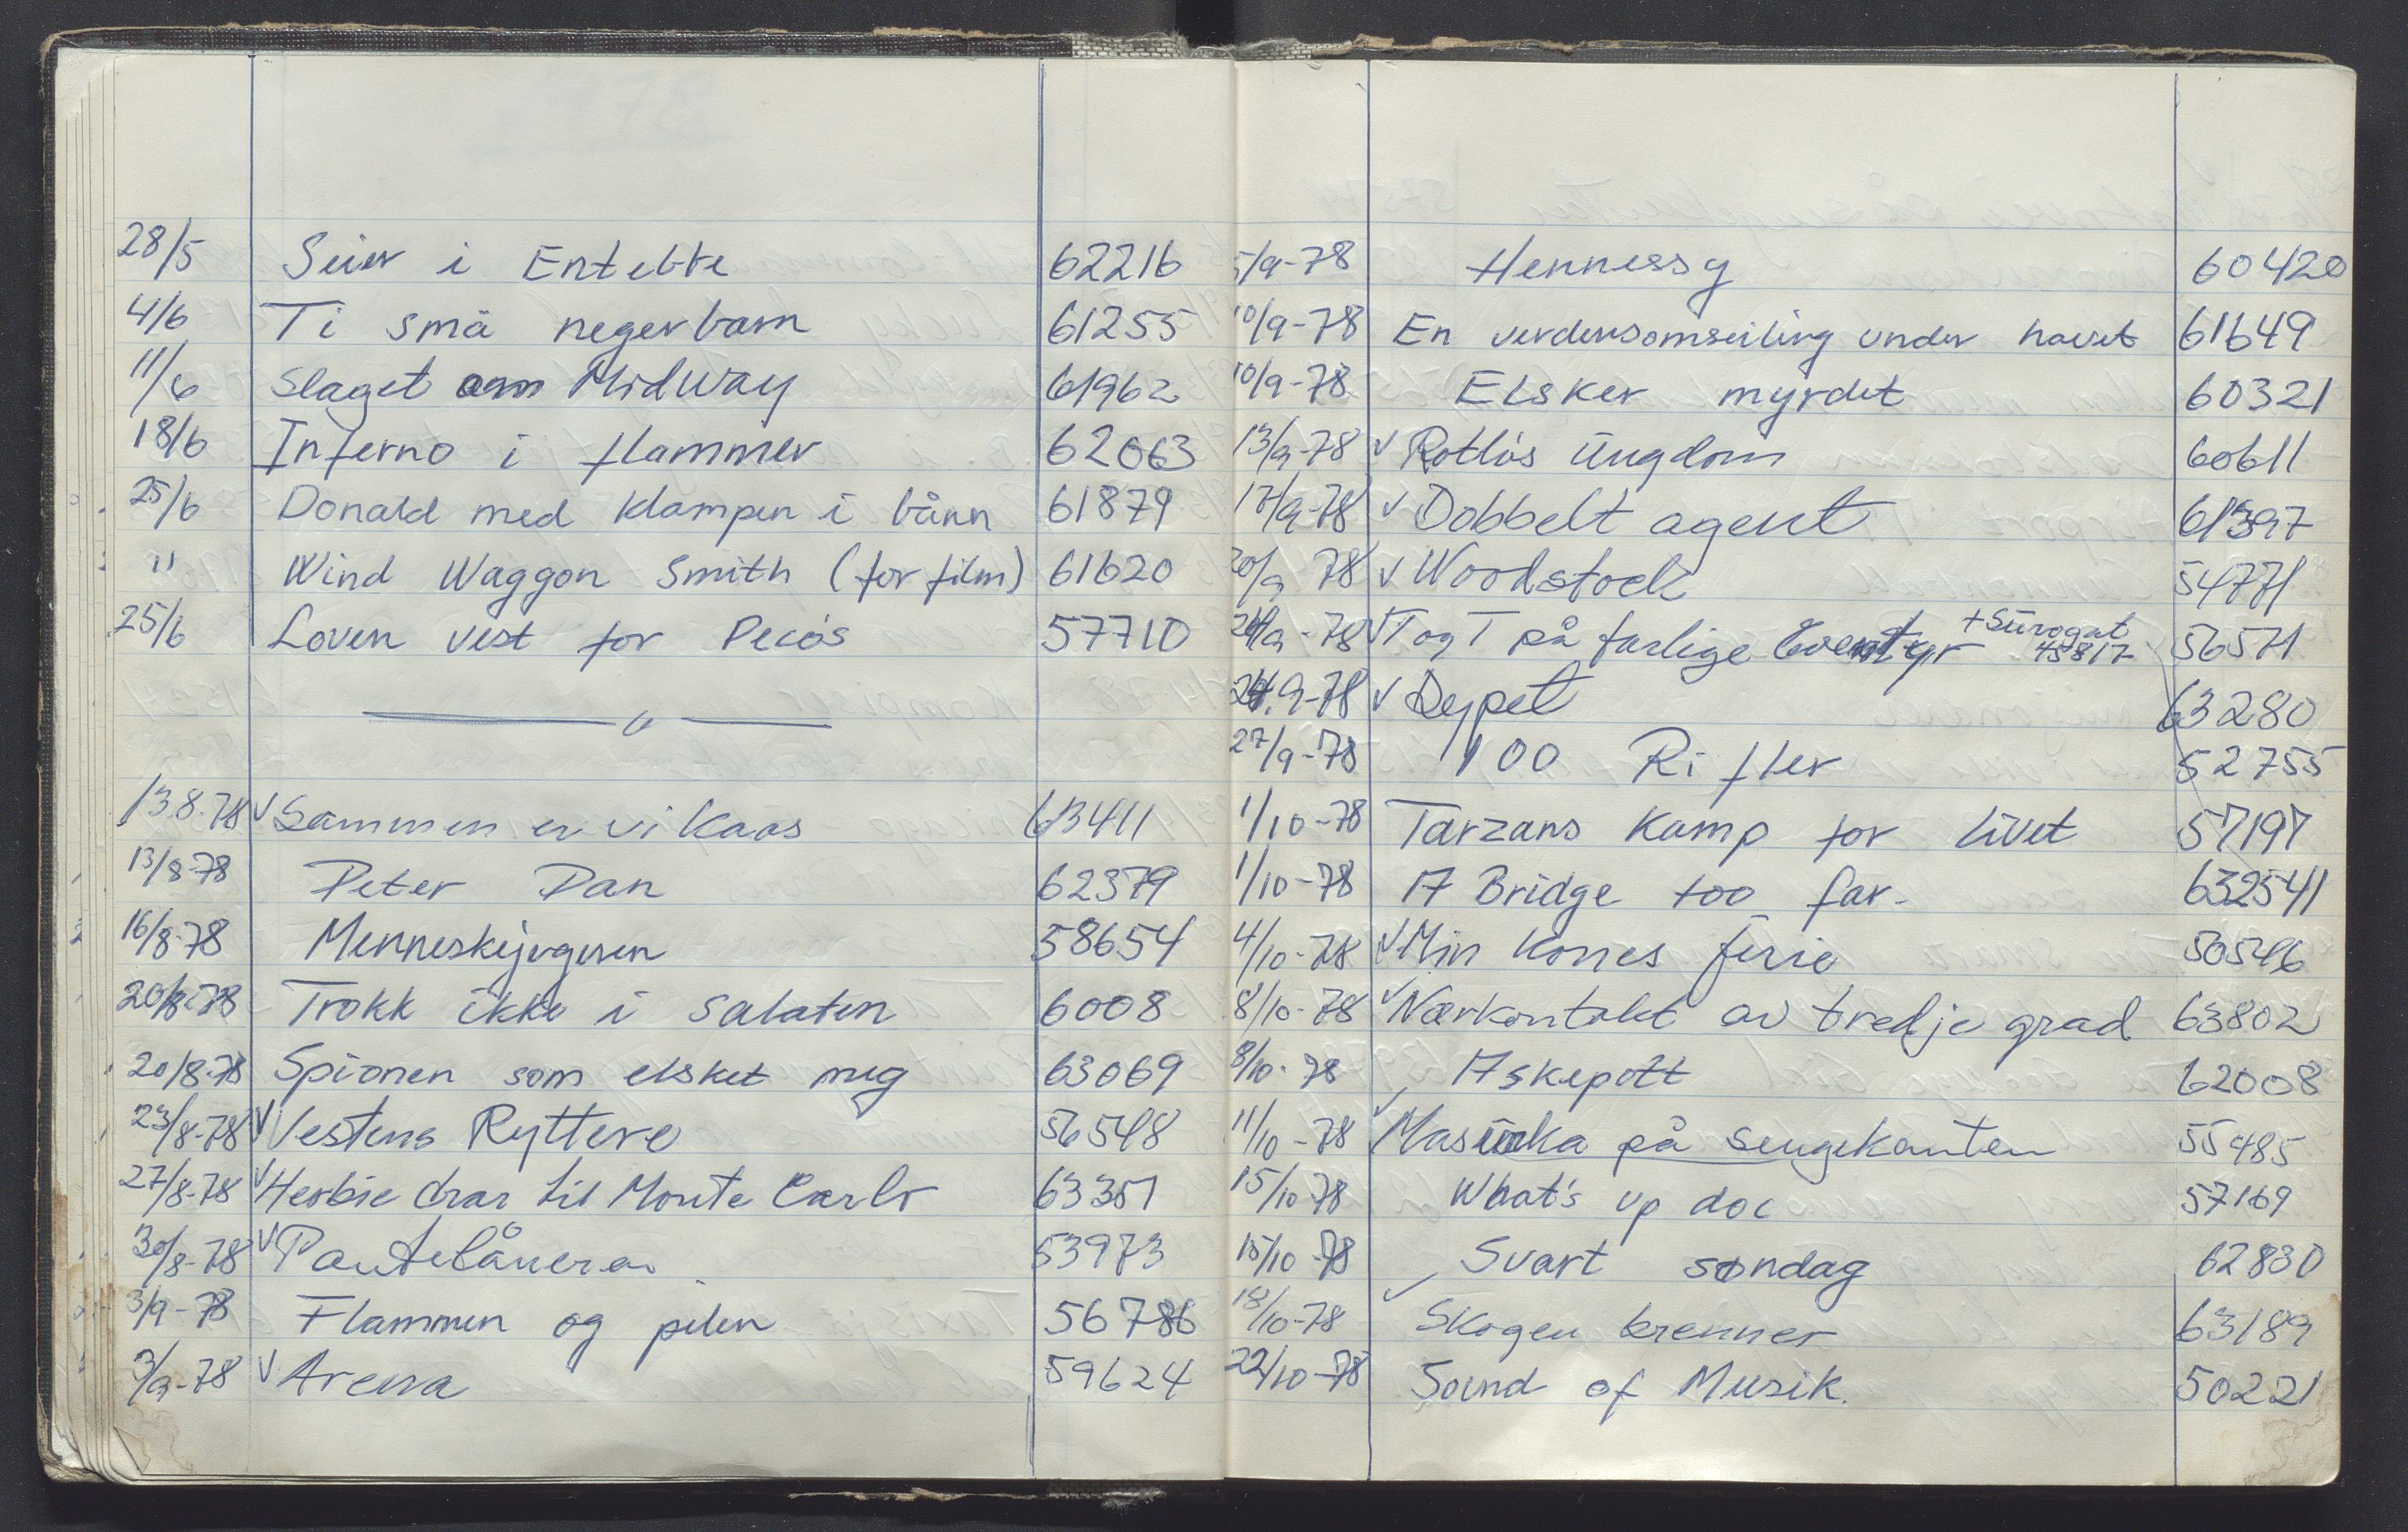 28/5 Seier i Entebbe 62216
4/6 Ti små negerbarn 61255
11/6 Slaget om Midway 61962
18/6 Inferno i flammer 62063
25/6 Donald med klampen i bånn 61879
" Wind Waggon Smith (for film) 61620
25/6 Loven vest for Pecos 57710
— " —
13.8.78 ✓ Sammen er vi Kaos 63411
13/8-78 Peter Pan 62379
16/8-78 Menneskejegeren 58654
20/8-78 Tråkk ikke i salaten 6008
20/8-78 Spionen som elsket meg 63069
23/8-78 ✓ Vestens Ryttere 56548
27/8-78 ✓ Herbie drar til Monte Carlo 63351
30/8-78 ✓ Pantelåneren 53973
3/9-78 Flammen og pilen 56786
3/9-78 ✓ Arena 59624
5/9-78 Hennessy 60420
10/9-78 En verdensomseiling under havet 61649
10/9-78 Elsker myrdet 60321
13/9-78 ✓ Rotløs Ungdom 60611
17/9-78 ✓ Dobbelt agent 61397
20/9 78 ✓ Woodstock 54771
24/9-78 ✓ T og T på farlige Eventyr + Surogat 45817 56571
24.9-78 ✓ Dypet 63280
27/9-78 100 Rifler 52755
1/10-78 Tarzans Kamp for livet 57197
1/10-78 A Bridge too far. 632541
4/10-78 ✓ Min Kones ferie 50546
8/10-78 ✓ Nærkontakt av tredje grad 63802
8/10-78 Askepott 62008
11/10-78 ✓ Masurka på sengekanten 55485
15/10 78 What's up doc 57169
15/10 78 Svart søndag 62830
18/10-78 ✓ Skogen brenner 63189
22/10-78 Sound of Musik. 50221